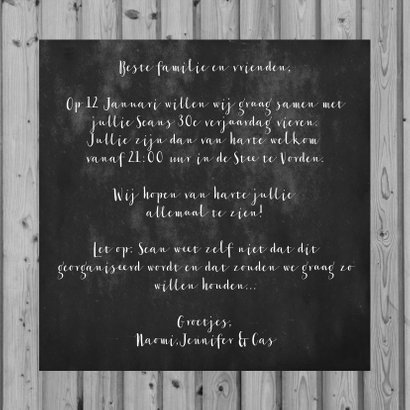 Beste familie en vrienden,
Op 12 Januari willen wij graag samen met
jullie Seans 30e verjaardag vieren.
Jullie zijn dan van harte welkom
vanaf 21:00 uur in de Stee te Vorden.
Wij hopen van harte jullie
allemaal te zien!
Let op: Sean weet zelf niet dat dit
georganiseerd wordt en dat zouden we graag zo
willen houden...
Groetjes,
Naomi,Jennifer & Cas